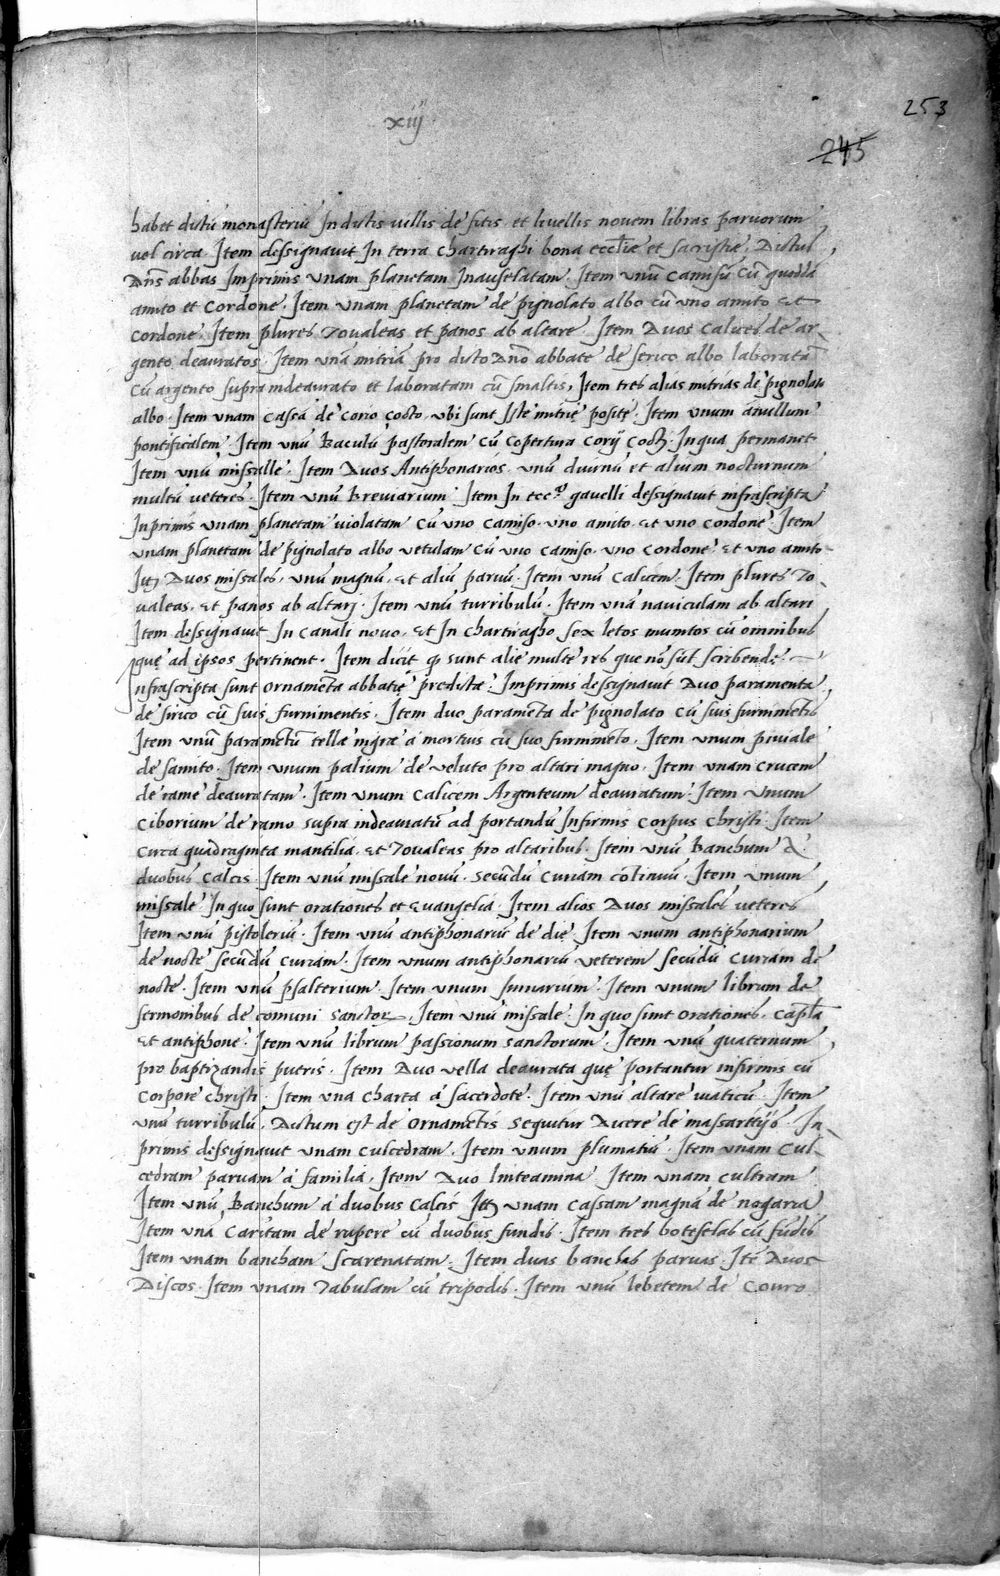 253
xiij
245
habet dictū monasteriū In dictis villis de fitis et livellis novem libras parvorum
vel circa. Item dessignavit In terra Chartiraghi bona ecclīe et sacristie. Dictus
dn̄s abbas Imprimis unam planetam Inauselatam. Item unū camisū cū quodā
amito et cordone. Item unam planetam de pignolato albo cū uno amito et
cordone. Item plures Toualeas et panos ab altare. Item duos calices de ar-
gento deauratos. Item unā mitriā pro dicto dn̄o abbate de serico albo laboratā
cū argento supraindeaurato et laboratam cū smaltis, Item tres alias mitrias de pignolato
albo. Item unam cassā de corio cocto, ubi sunt Iste mitrię posite. Item unum anullum
pontificalem. Item unū Baculū pastoralem cū copertura corij cocti In qua permanet
Item unū missalle. Item duos Antiphonarios, unū diurnū et alium nocturnum
multū veteres. Item unū Breviarium. Item In eccᵃ gavelli dessignavit infrascripta
Inprimis unam planetam violatam cū uno camiso, uno amito, et uno cordone. Item
unam planetam de pignolato albo vetulam cū uno camiso, uno cordone, et uno amito
Itꝫ duos missales, unū magnū, et aliū parvū. Item unū calicem. Item plures To-
valeas, et panos ab altarj. Item unū turribulū. Item unā naviculam ab altari
Item dessignavit In canali novo, et In Chartiragho sex letos munitos cū omnibus
quę ad ipsos pertinent. Item dicit ꝙ sunt alie multe res que nō sūt scribendę.
Infrascripta sunt ornamenta abbatię predictæ. Imprimis dessignavit duo paramenta
de sirico cū suis furnimentis. Item duo paramēta de pignolato cū suis furnimētis
Item unū paramētū tellæ nigræ a mortuis cū suo furnimēto. Item unum piviale
de samito. Item unum palium de veluto pro altari magno. Item unam crucem
de rame deauratam. Item unum calicem Argenteum deauratum. Item unum
ciborium de ramo supra indeauratū ad portandū Infirmis Corpus Christi. Item
circa quadraginta mantilia, et Toualeas pro altaribus. Item unū Banchum a
duobus calcis. Item unū missale novū, secūdū curiam cōtinuū. Item unum
missale In quo sunt orationes et evangelia. Item alios duos missales veteres
Item unū pistoleriū. Item unū antiphonariū de die. Item unum antiphonarium
de nocte secūdū curiam. Item unum antiphonariū veterem secūdū curiam de
nocte. Item unū psalterium. Item unum Innarium. Item unum librum de
sermonibus de comuni sanctoꝝ. Item unū missale In quo sunt orationes, capl̄a
et antiphone. Item unū librum passionum sanctorum. Item unū quaternum
pro baptizandis pueris. Item duo vella deaurata quę portantur infirmis cū
corpore Christi. Item una charta a sacerdote. Item unū altare viaticū. Item
unū turribulū. Dictum est de ornamētis sequitur avere de massarittijs. In-
primis dessignavit unam culcedram. Item unum plumatiū. Item unam cul-
cedram parvam a familia. Item duo linteamina Item unam cultram
Item unū Banchum a duobus calcis Itꝫ unam cassam magnā de nogaria
Item unā caritam de rupere cū duobus fundis. Item tres botesellas cū fūdis
Item unam bancham scarenatam. Item duas banchas parvas. Itē duos
Discos. Item unam Tabulam cū tripodis. Item unū lebetem de Couro